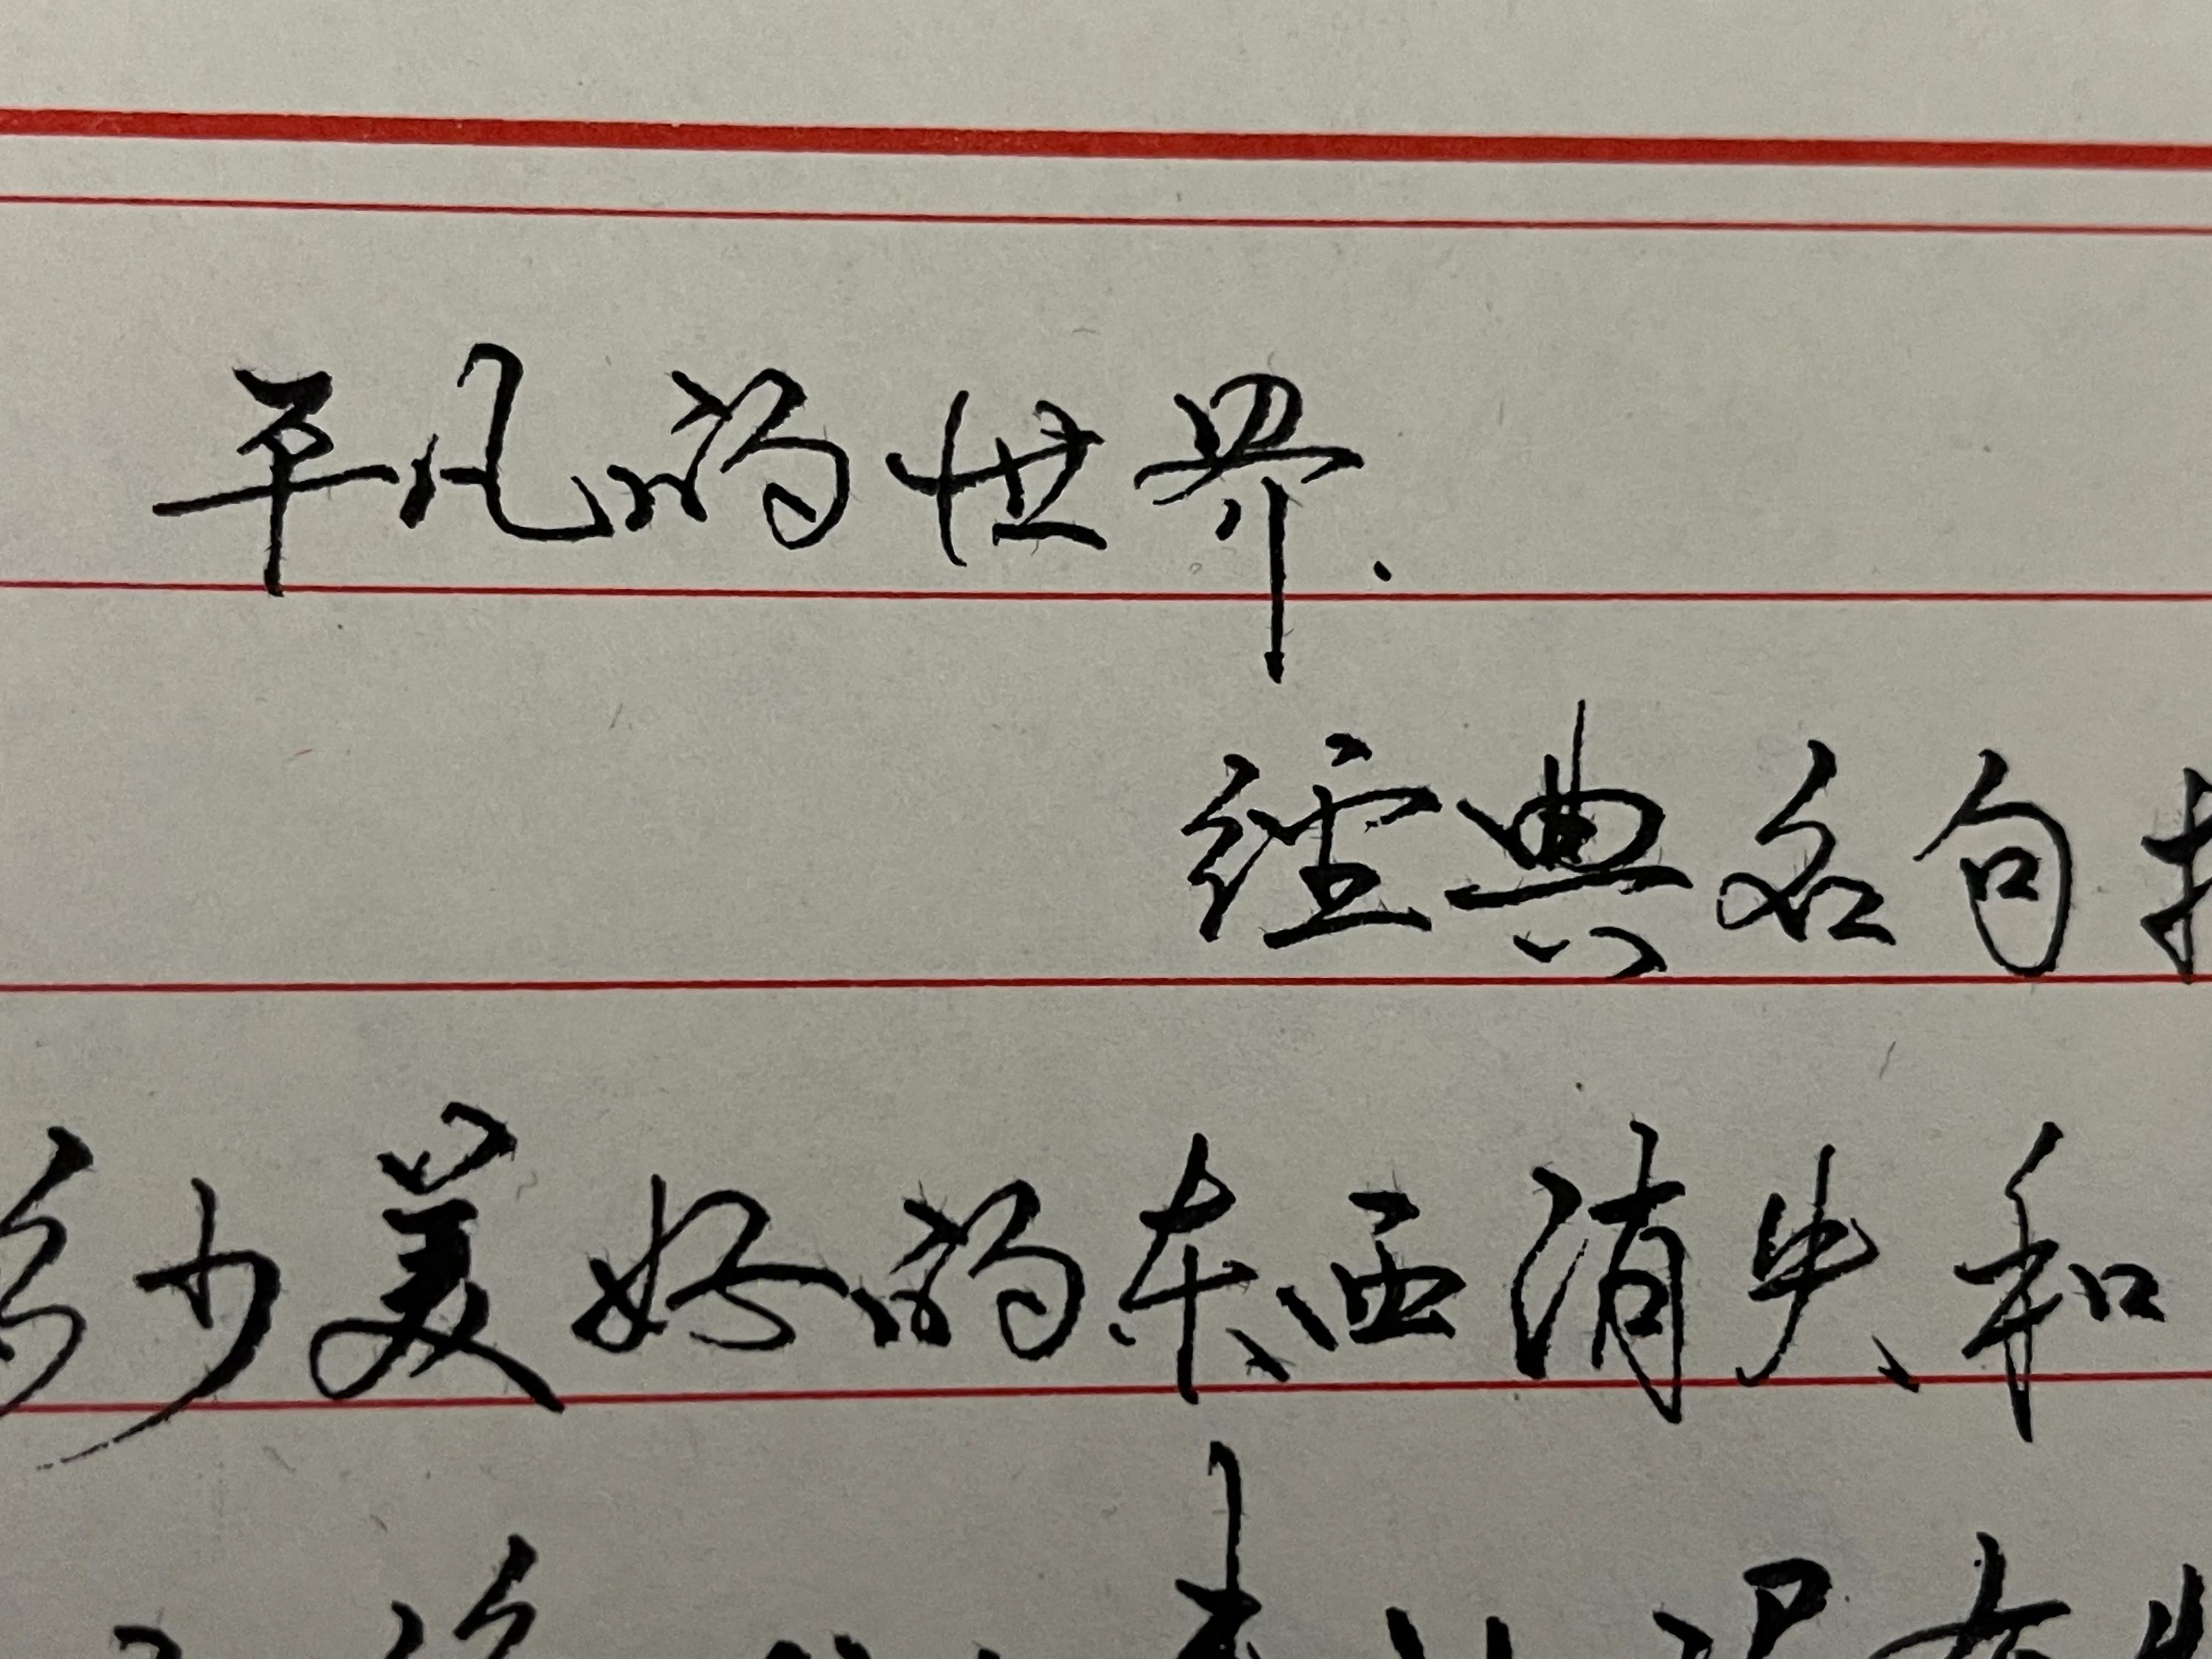 平凡的世界.
经典名句
多少美好的东西消失和
没有